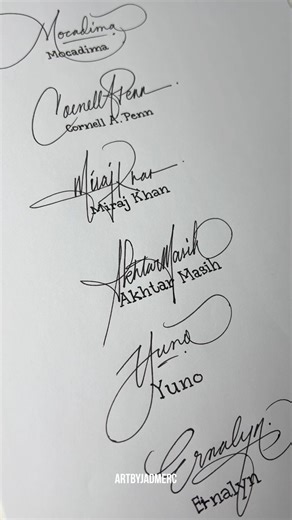 Mocadima
Mocadima
Cornell A. Penn
Cornell A. Penn
Miraj Khan
Miraj Khan
Akhtar Masih
Akhtar Masih
Yuno
Yuno
Ernalyn.
Ernalyn
ARTBYJADMERC